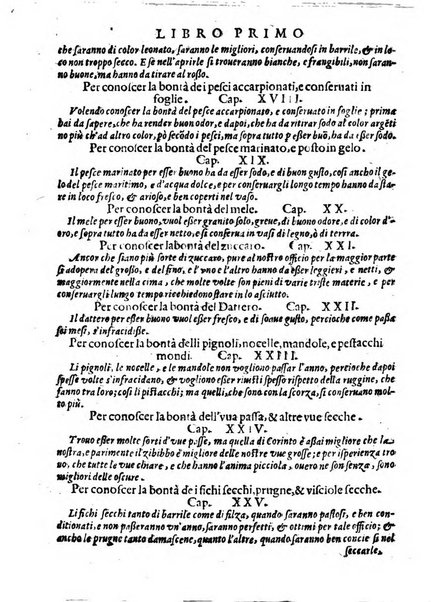 LIBRO PRIMO
che saranno di color leonato, saranno le migliori, conseruandosi in barrile, & in lo-
co non troppo secco. E se nell'aprirli si troueranno bianche, e frangibili, non saran
no buone, ma hanno da tirare al rosso.
Per conoscer la bontà dei pesci accarpionati, e conseruati in
foglie. Cap. XVIII.
Volendo conoscer la bontà del pesce accarpionato, e conseruato in foglie; prima
hai da sapere, che ha render buon odore, e dapoi, che ha da ritirar sodo al color argẽti
no più ch'ad altro color, pò secõdo i pesci, ma sopra tutto p esser buõ, ha da esser sodo.
Per conoscer la bontà del pesce marinato, e posto in gelo.
Cap. XIX.
Il pesce marinato per esser buono ha da esser sodo, e di buon gusto, cosi anche il ge-
lo del pesce maritimo, e d'acqua dolce, e per conseruargli longo tempo hanno da sta-
re in loco fresco, & arioso, e ben coperti nel vaso.
Per conoscer la bontà del mele. Cap. XX.
Il mele per esser buono, vuol esser granito solo, greue, di buono odore, e di color d'o-
ro, e sopra tutto ha da esser netto, e si conserua in vasi di legno, ò di terra.
Per conoscer la bontà del zuccaro. Cap. XXI.
Ancor che siano più sorte di zuccaro, pure al nostro officio per la maggior parte
si adopera del grosso, e del fino, e l'vno e l'altro hanno da esser leggieri, e netti, &
maggiormente nella cima, che molte volte son pieni di varie triste materie, e per
conseruargli lungo tempo richiedono stare in lo asciutto.
Per conoscer la bontà del Dattero. Cap. XXII.
Il dattero per esser buono vuol esser fresco, e di soaue gusto, percioche come passa
sei mesi, s'infracidisse.
Per conoscer la bontà delli pignoli, nocelle, mandole, e pestacchi
mondi. Cap. XXIII.
Li pignoli, le nocelle, e le mandole non vogliono passar l'anno, percioche dapoi
spesse volte s'infracidano, & vogliono esser reuisti spesso rispetto della ruggine, che
fanno tra loro; cosi i pistacchi, ma quelli che sono con la scorza, si conseruano mol-
to più.
Per conoscer la bontà dell'vua passa, & altre vue secche.
Cap. XXIV.
Trouo esser molte sorti d'vue passe, ma quella di Corinto è assai migliore che la
nostra, & parimente il zibibbo è migliore delle nostre vue grosse; e per isperienza tro
uo, che tutte le vue chiare, e che hanno l'anima picciola, ouero ne son senza, sono
migliori delle oscure.
Per conoscer la bontà de i fichi secchi, prugne, & visciole secche.
Cap. XXV.
Li fichi secchi tanto di barrile come di filza, quando saranno freschi, e ben con-
ditionati, e non passeranno vn'anno, saranno perfetti, & ottimi per tale officio; &
anche le prugne tanto damascene, quanto l'altre, quando saranno ben concie si nel
seccarle,